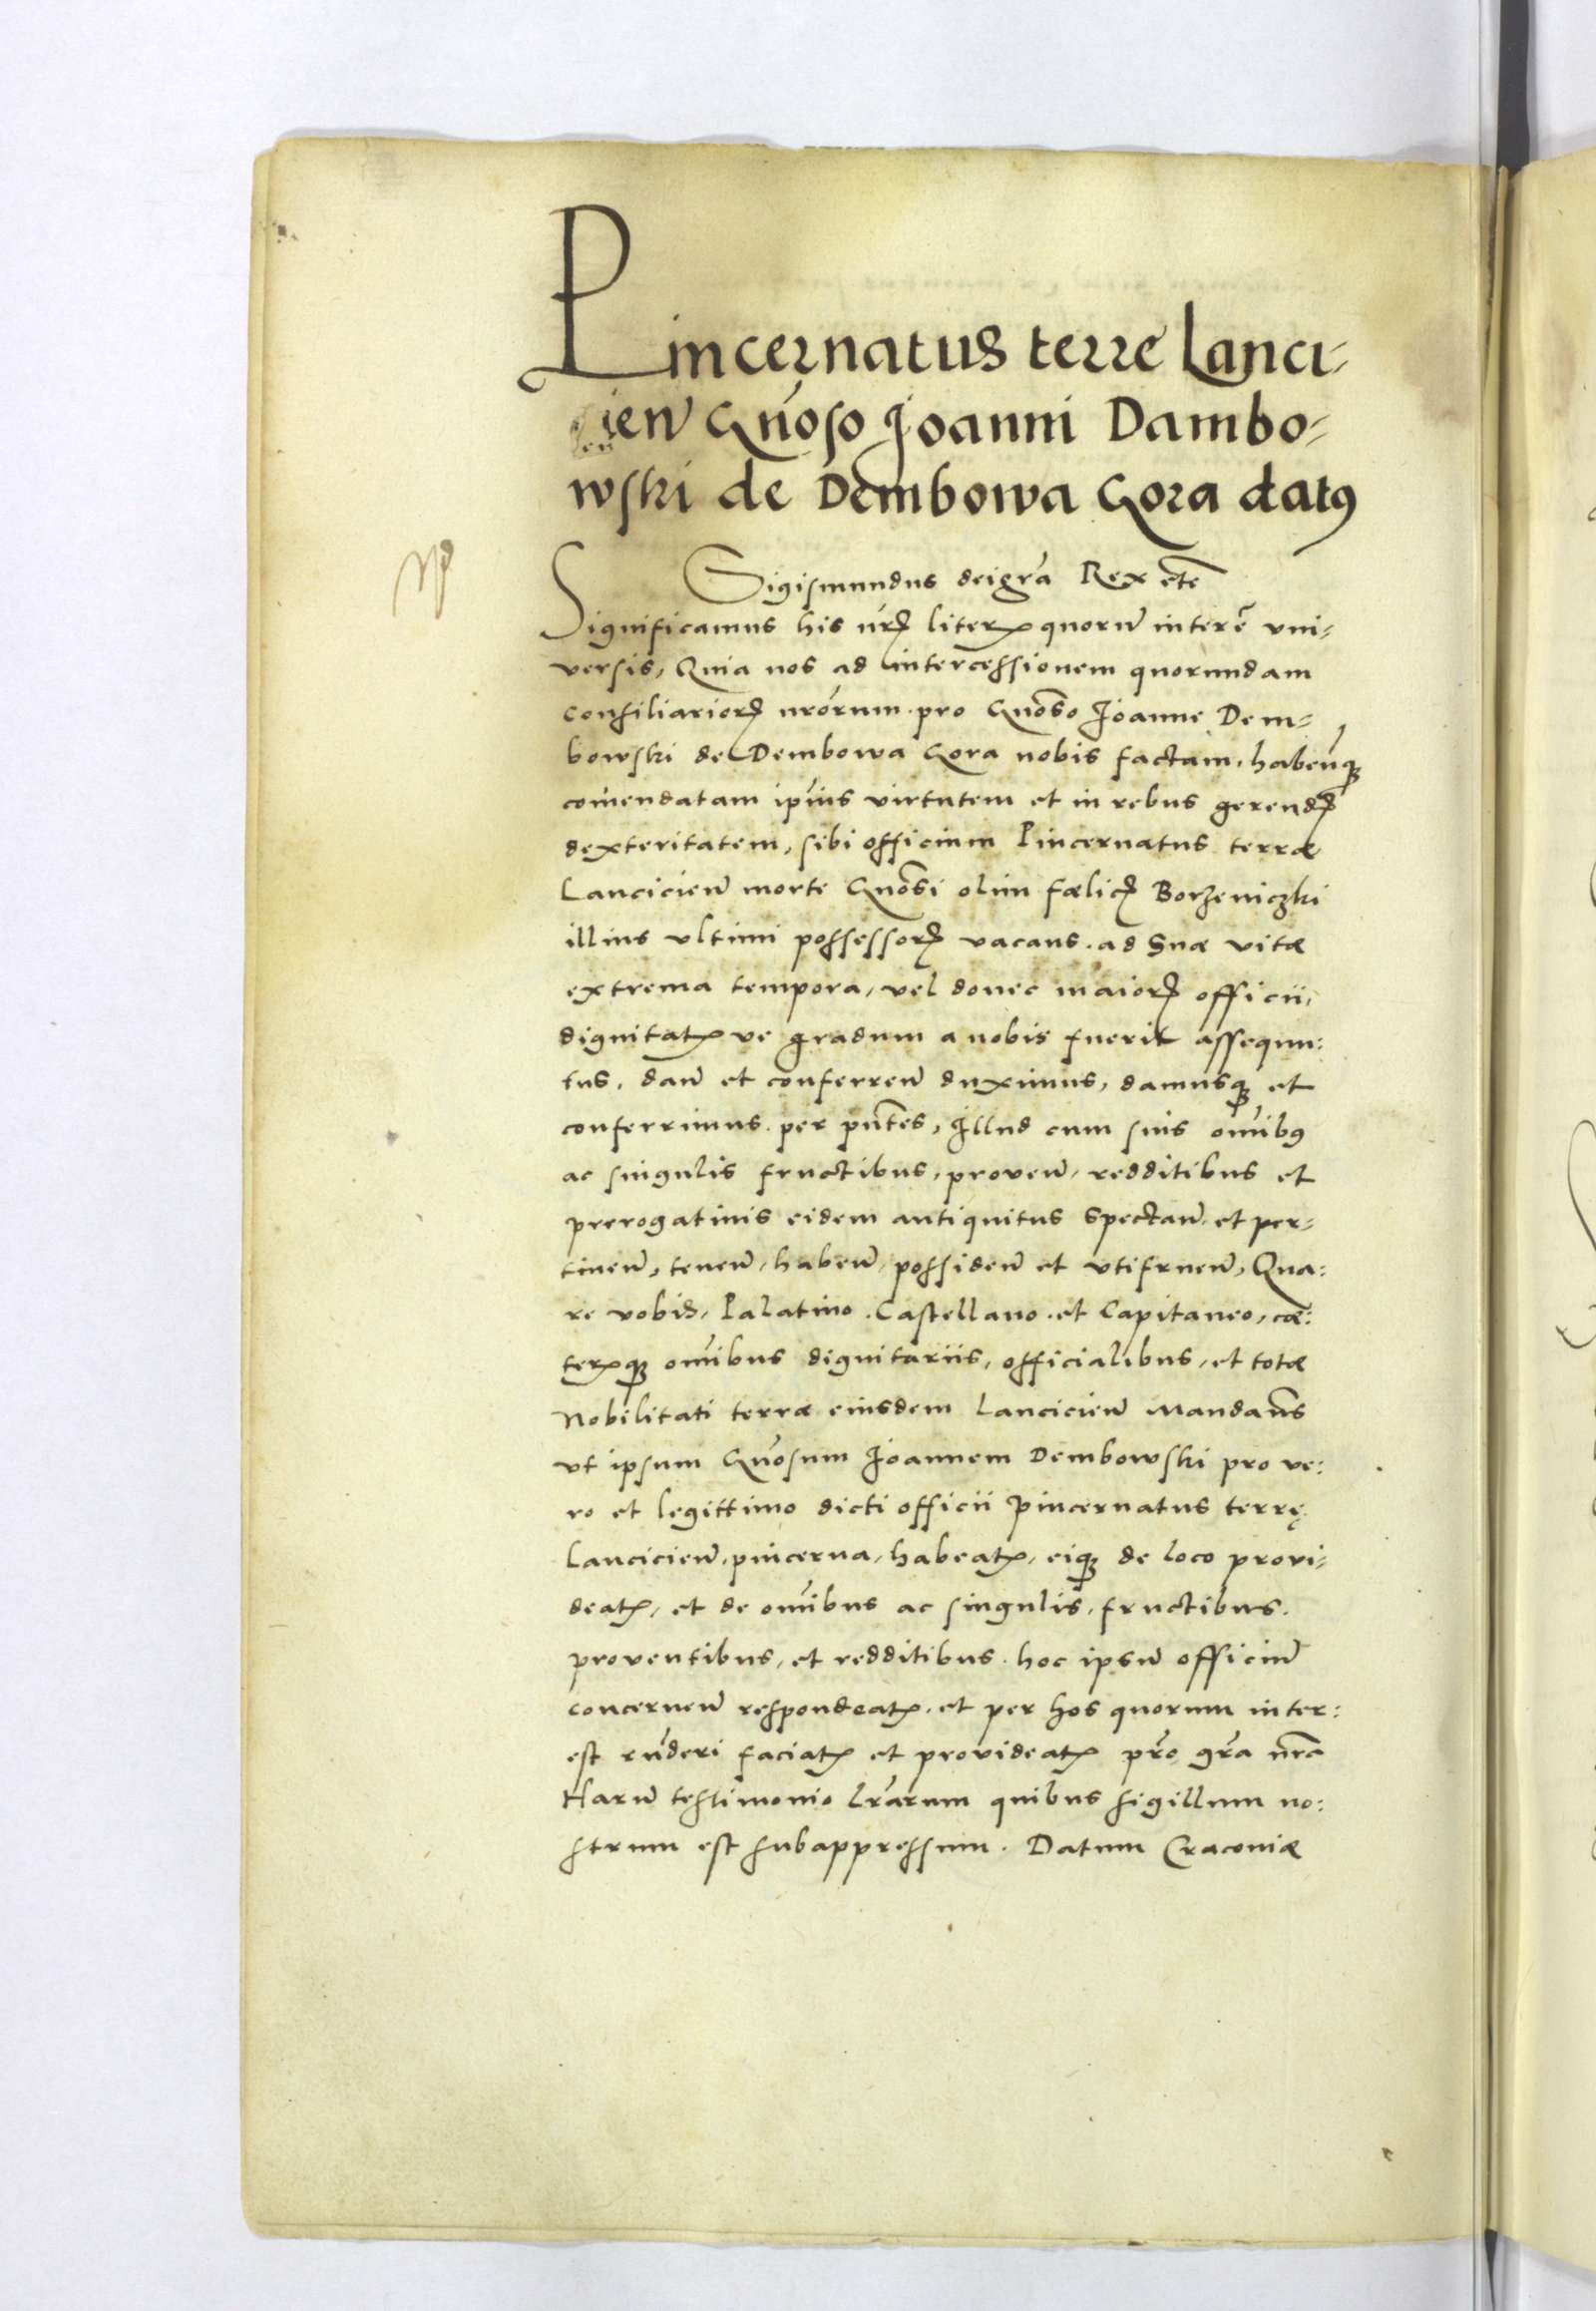 Pincernatus terre Lanci-
cien Gnoso Joanni Dambo-
wski de Dembowa Gora datus
Sigismundus dei gra Rex etc
Significamus his nris literis quorum interest vni-
versis, Quia nos ad intercessionem quorundam
consiliarioru nrorum pro Gnoso Joanne Dem-
bowski de Dembowa Gora nobis factam, habenque
comendatam ipius virtutem et in rebus gerendis
dexteritatem, sibi officium Pincernatus terræ
Lancicien morte Gnosi olim fœlicis Borzeniczki
illius vltimi possessoris vacans. ad Suæ vitæ
extrema tempora, vel donec maioris officii,
dignitatis ve gradum a nobis fuerit assequu:
tus. dan et conferren duximus, damusque et
conferrimus per pntes, Illud cum suis omibus
ac singulis fructibus, proven, redditibus et
prerogatiuis eidem antiquitus spectan et per-
tinen, tenen, haben, possiden et vtifruen, Qua:
re vobis, Palatino. Castellano. et Capitaneo, cæ:
terisque omibus dignitariis, officialibus, et totæ
Nobilitati terræ eiusdem Lancicien Mandans
vt ipsum Gnosum Joannem Dembowski pro ve:
ro et legittimo dicti officii Pincernatus terrę
Lancicien, pincerna, habeatis, eique de loco provi-
deatis, et de omibus ac singulis, fructibus.
proventibus, et redditibus. hoc ipsum officium
concernen respondeatis. et per hos quorum inter:
est rnderi faciatis et provideatis pro gra nra
Harum testimonio lrarum quibus sigillum no:
strum est subappressum. Datum Cracoviæ